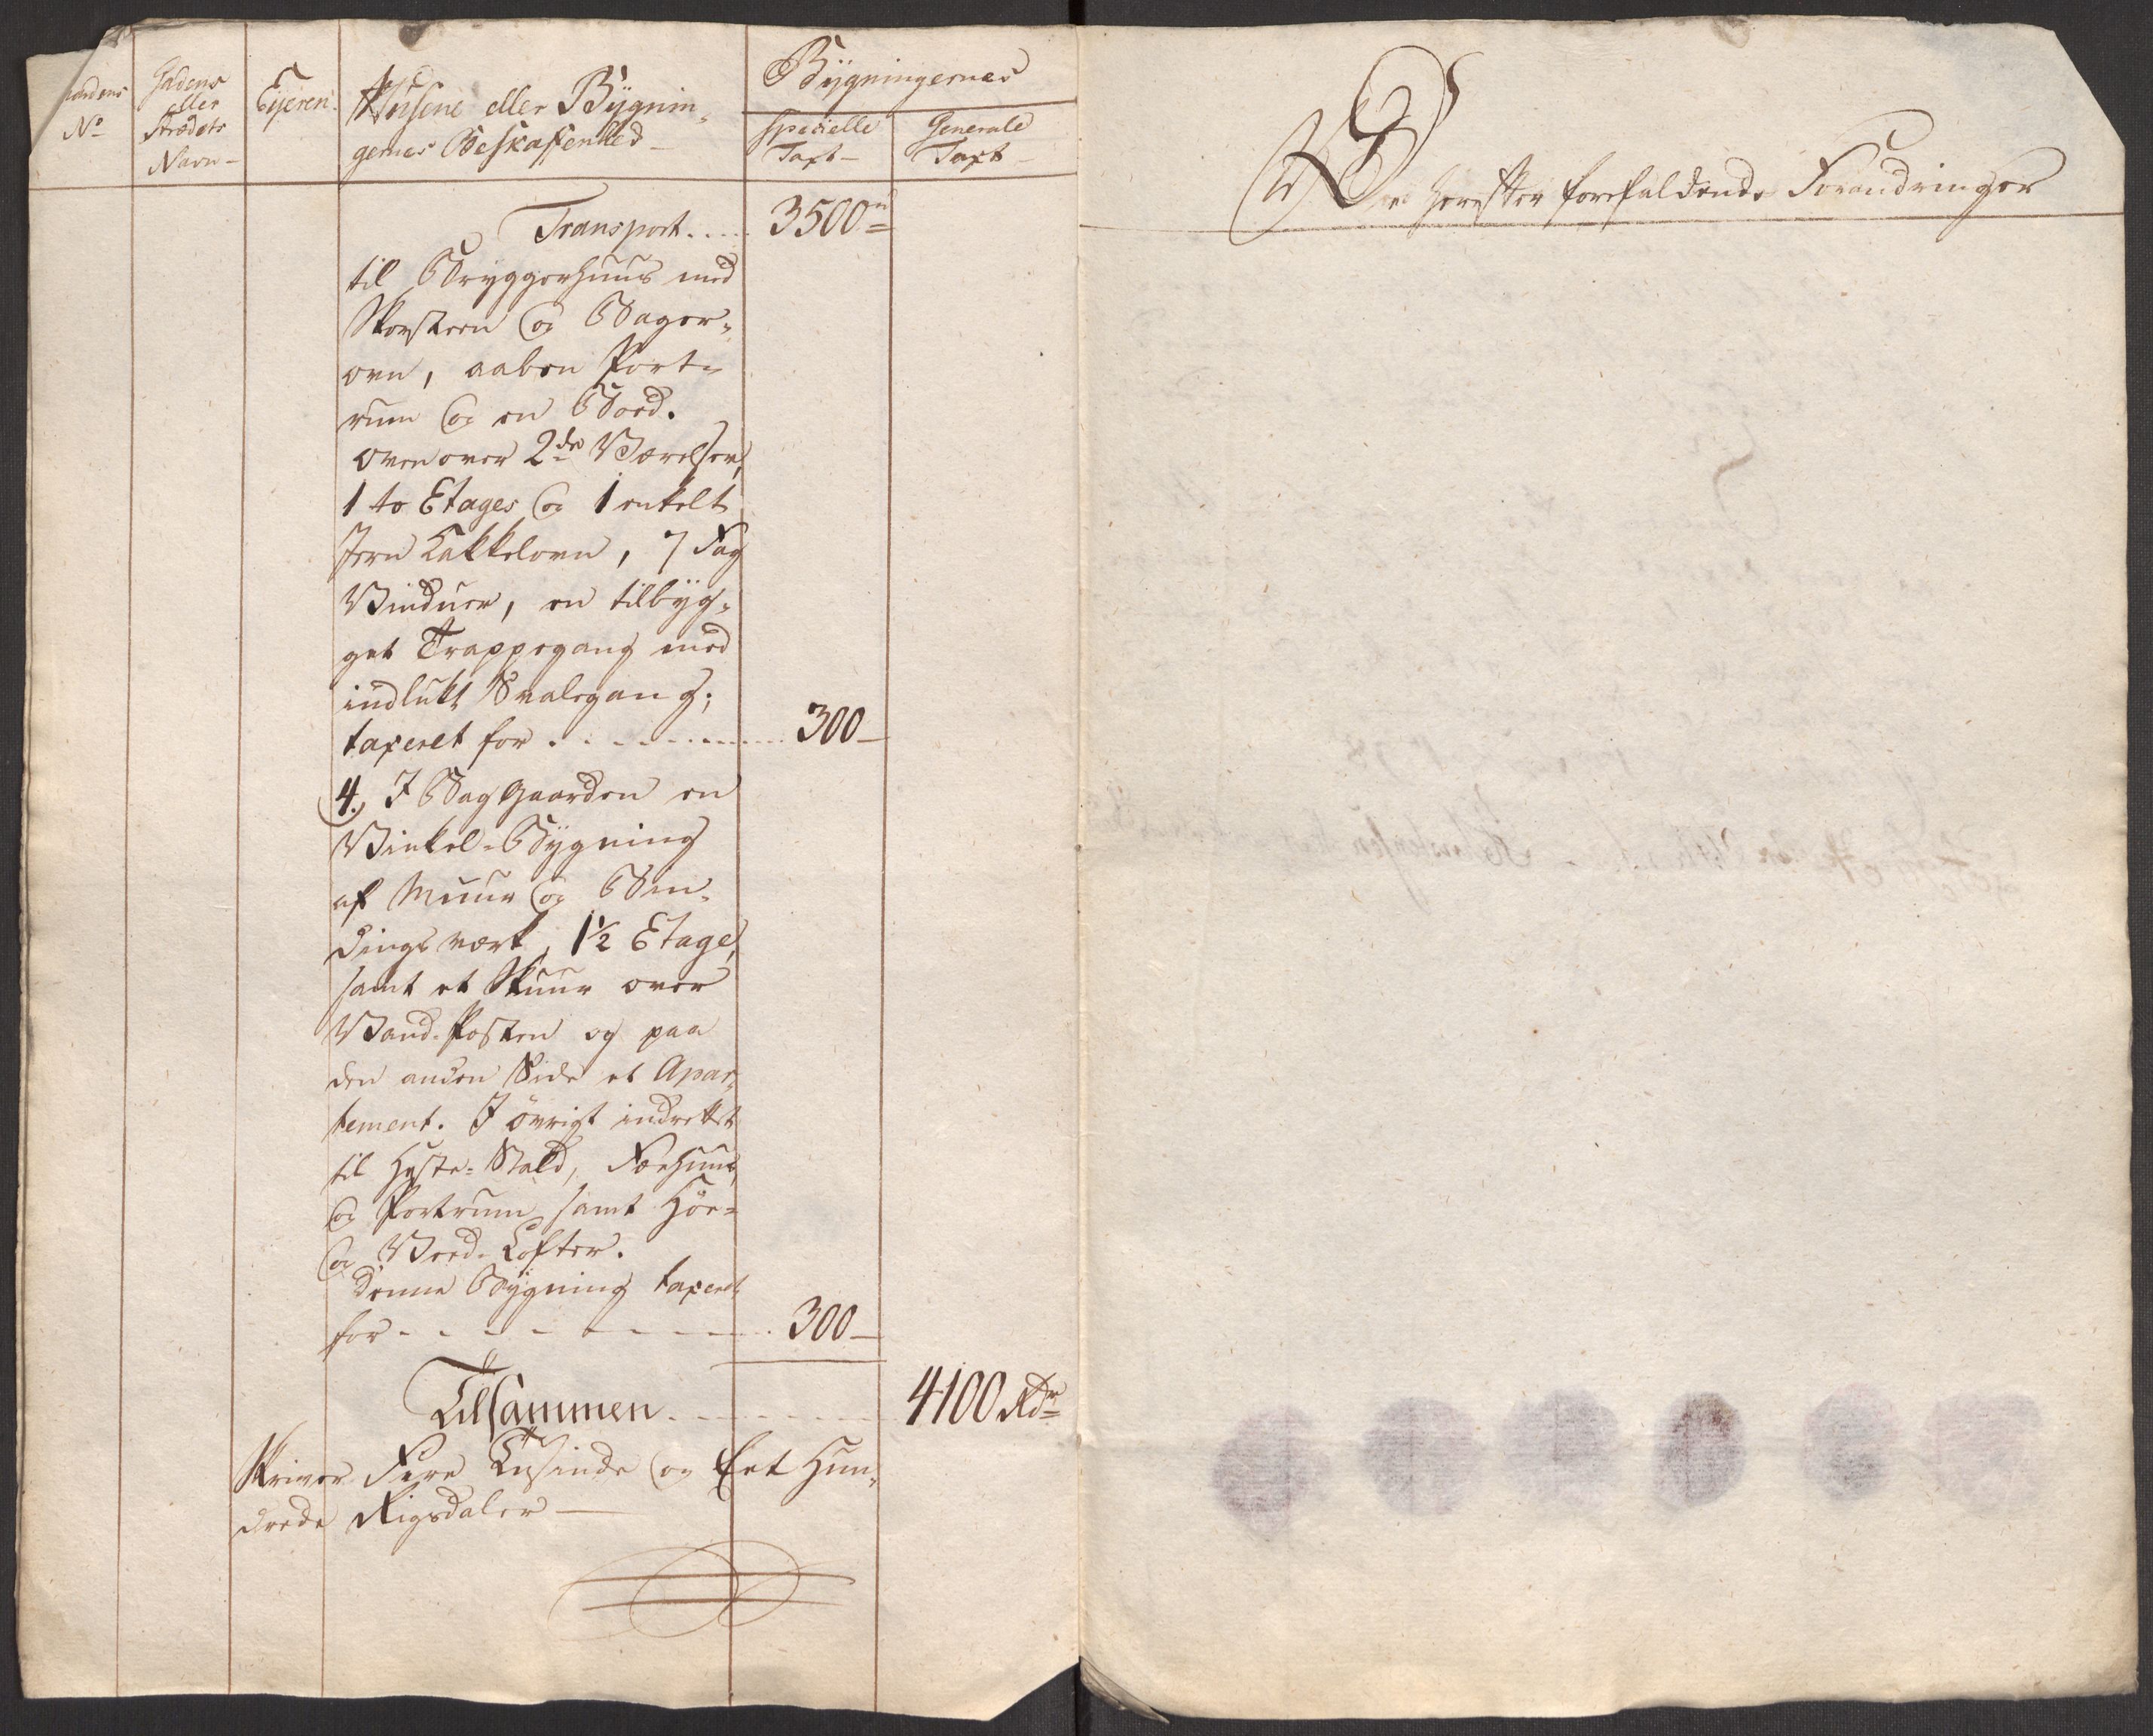 Gaardens
No
Gadens
eller
Strædets
Navn
Eijeren.
Husene eller Bÿgnin-
gernes Beskaffenhed
Bÿgningernes
Specielle
Taxt
Generale
Taxt
Transport .... 3500
til Bryggerhuus med
Skorsteen og Bager-
ovn, aaben Port-
rum og en Boed.
Oven over 2de Værelser,
1 to Etages og 1 enkelt
Jern Kakkelovn, 7 Fag
Vinduer, en tilbÿg-
get Trappegang med
indlukt Svalegang;
taxeret for ........ 300
4. I Bag Gaarden en
Vinkel-Bÿgning
af Muur og Bin-
dingsværk, 1½ Etage,
samt et Skuur over
Vand-Posten og paa
den anden Side et Apar-
tement. I övrigt indrettet
til Heste-Stald, Foehuus,
og Portrum samt Höe-
og Veed-Lofter.
Denne Bÿgning taxeret
for ........ 300
Tilsammen ........ 4100 Rdr
Skriver Fire Tusinde og Eet Hun-
drede Rigsdaler
De herefter forefaldende Forandringer